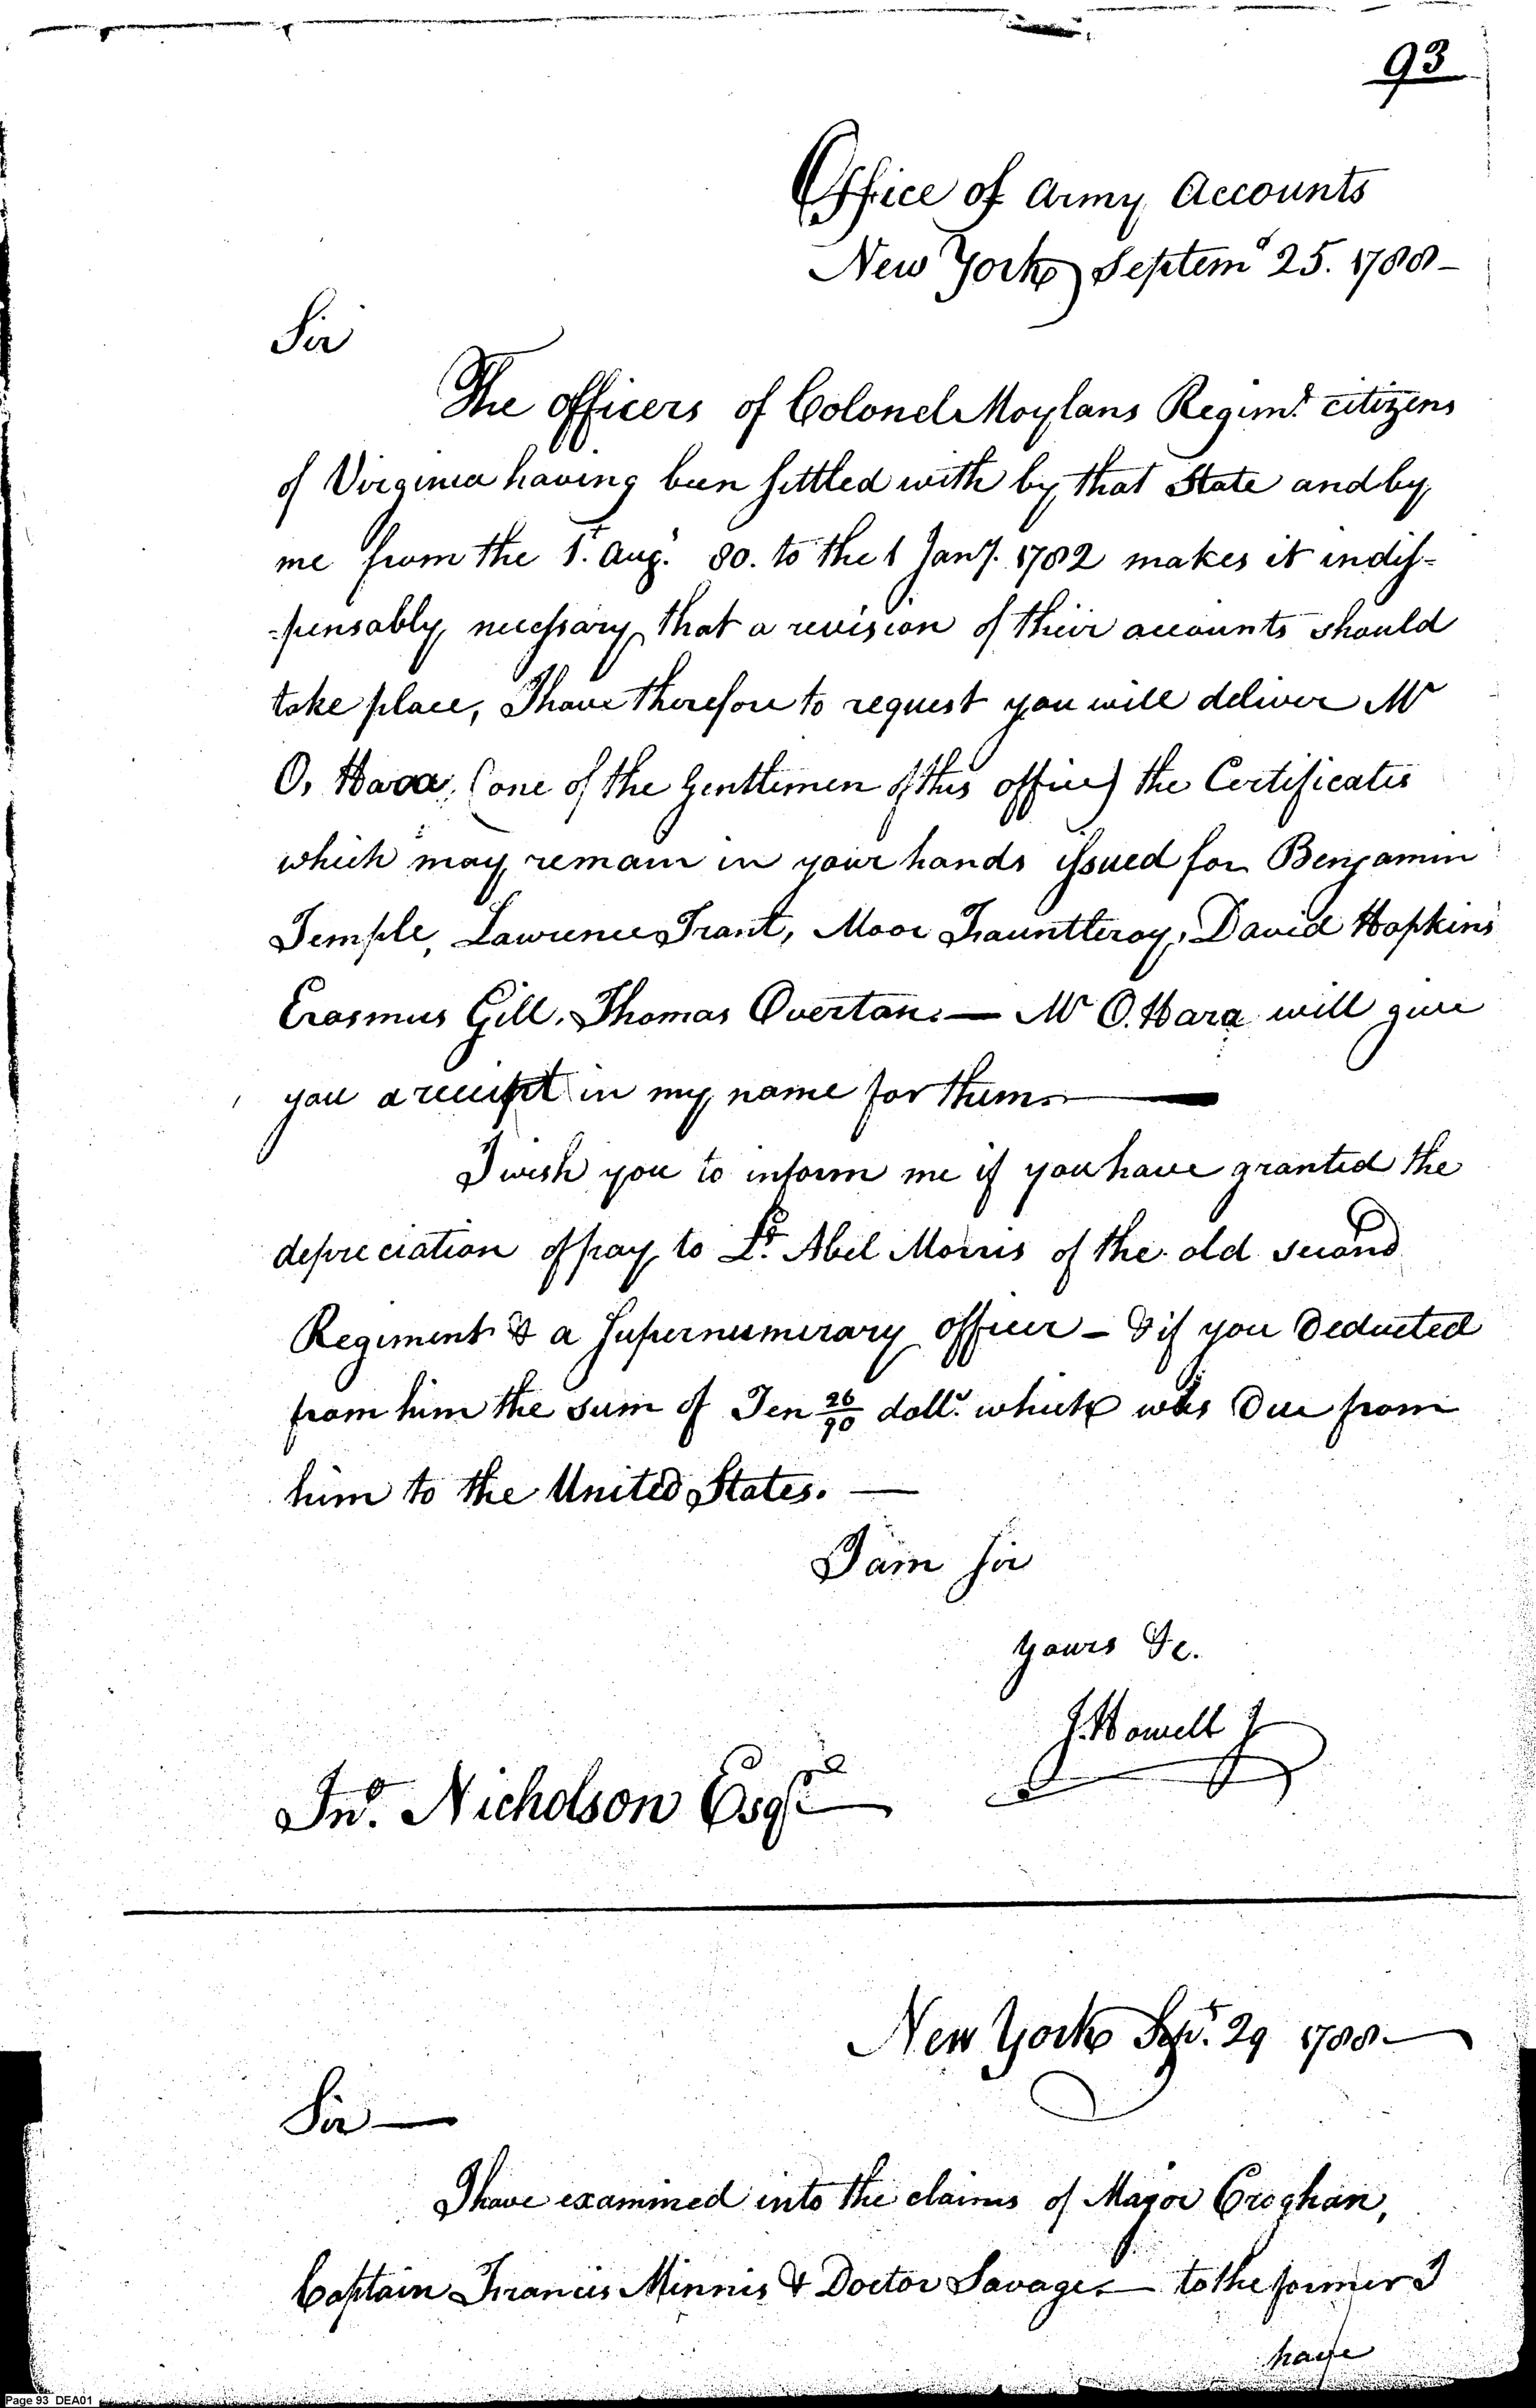 93
Office of Army Accounts
New York Septemr 25. 1788-
Sir
The officers of Colonel Moylans Regimt. citizens
of Virginia having been settled with by that State and by
me from the 1st. Augt. 80. to the 1 Jany. 1782 makes it indis-
-pensably necessary that a revision of their accounts should
take place, I have therefore to request you will deliver Mr
O, Hara, (one of the Gentlemen of this office) the Certificates
which may remain in your hands issued for Benjamin
Temple, Lawrence Trant, Moor Fauntleroy, David Hopkins
Erasmus Gill, Thomas Overton. — Mr O. Hara will give
you a receipt in my name for them. —
I wish you to inform me if you have granted the
depreciation of pay to Lt. Abel Morris of the old second
Regiment & a Supernumerary officer - & if you Deducted
from him the sum of Ten 26/90 dolls. which was Due from
him to the United States. —
I am Sir
Yours &c.
J. Howell J
Jno. Nicholson Esqr.
New York Sept. 29 1788 —
Sir —
I have examined into the claims of Major Croghan,
Captain Francis Minnis & Doctor Savage. — to the former I
have
Page 93 DEA01